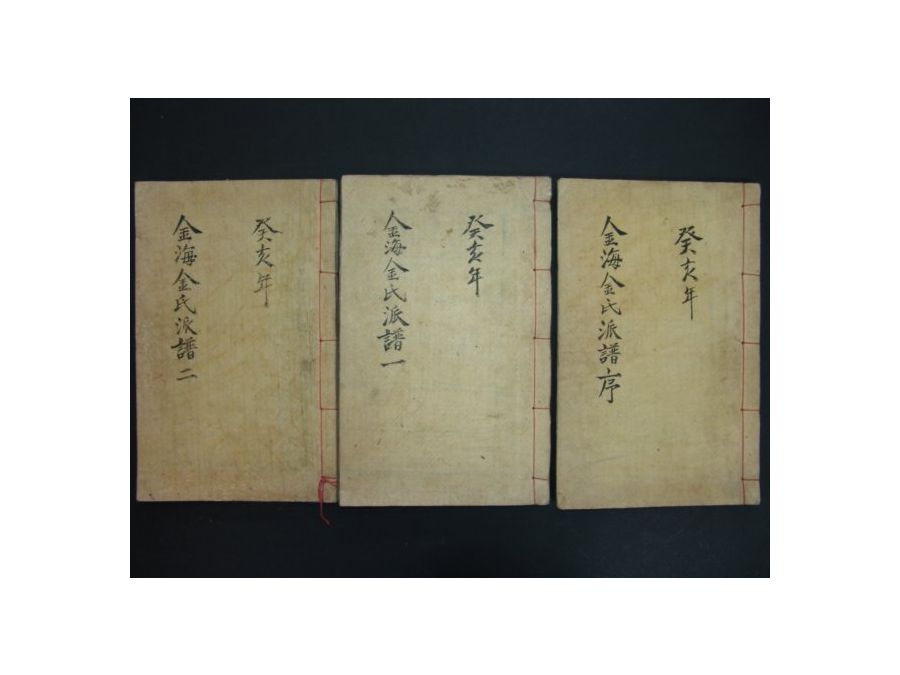 癸亥年
金海金氏派譜序
癸亥年
金海金氏派譜一
癸亥年
金海金氏派譜二